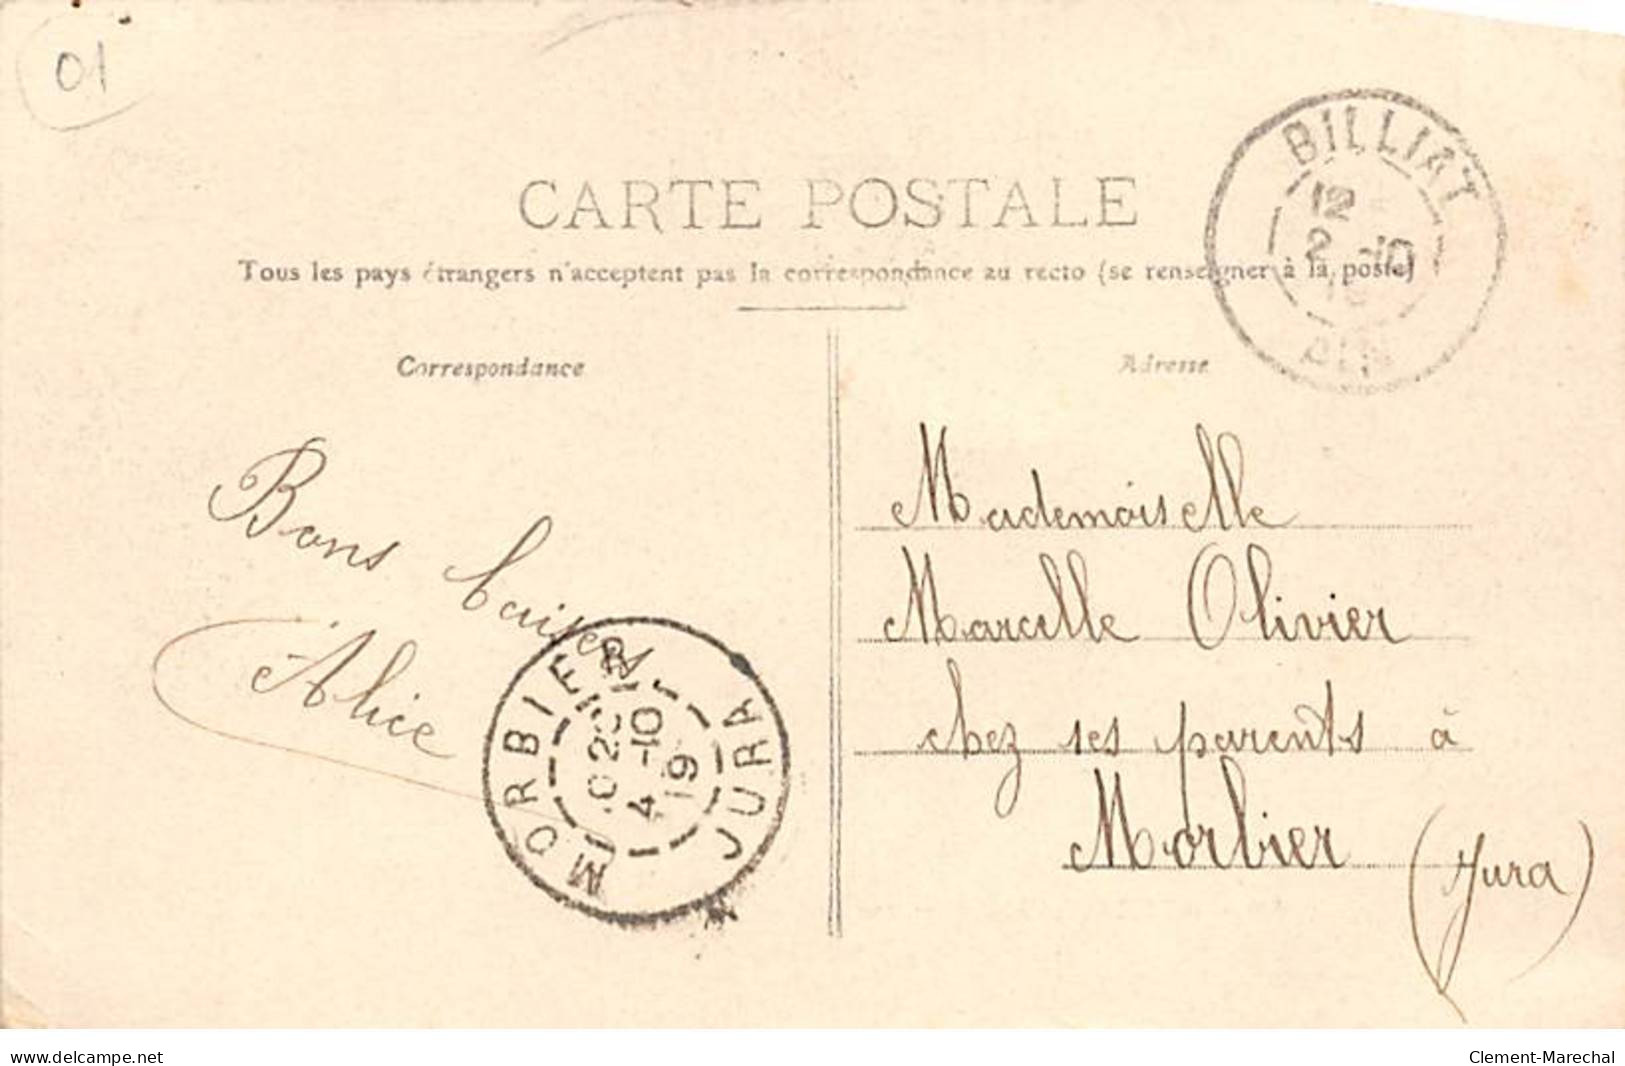 01
BILLIAT
12
2 -10
AIN
CARTE POSTALE
Tous les pays étrangers n'acceptent pas la correspondance au recto (se renseigner à la poste)
Correspondance
Bons baisers
Alice
MORBIER
4 -10
19
JURA
Adresse
Mademoiselle
Marcelle Olivier
chez ses parents à
Morbier (Jura)
www.delcampe.net
Clement-Marechal